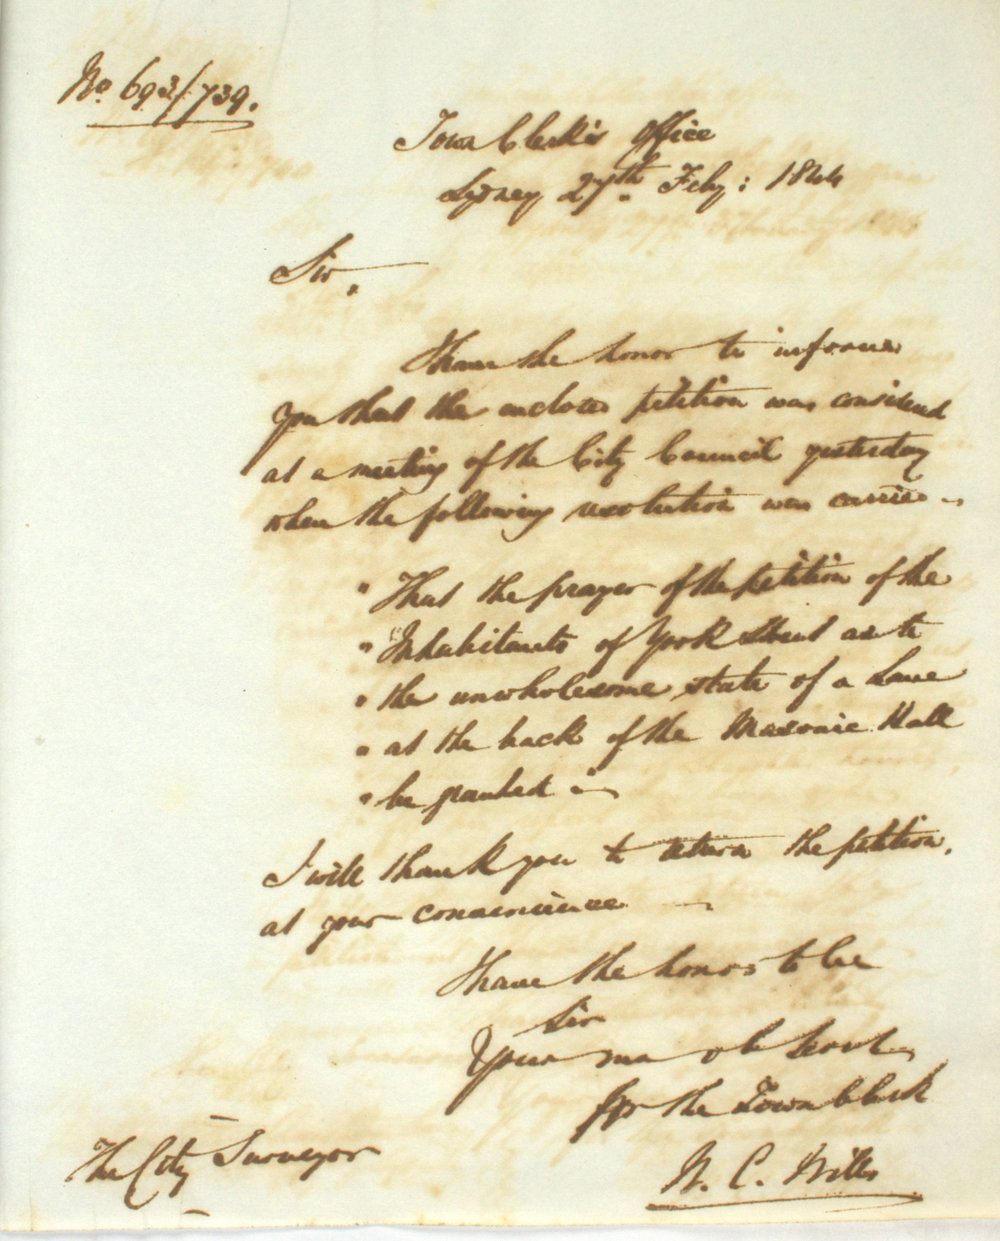 No. 693/739.
Town Clerk's Office
Sydney 27th. Feby: 1844
Sir,
I have the honor to inform
you that the enclosed petition was considered
at a meeting of the City Council yesterday
when the following resolution was carried
"That the prayer of the petition of the
"Inhabitants of York Street as to
"the unwholesome state of a Lane
"at the back of the Masonic Hall
"be granted
I will thank you to return the petition,
at your convenience
I have the honor to be
Sir
Your ob Servt
for the Town Clerk
W. C. Wills
The City Surveyor